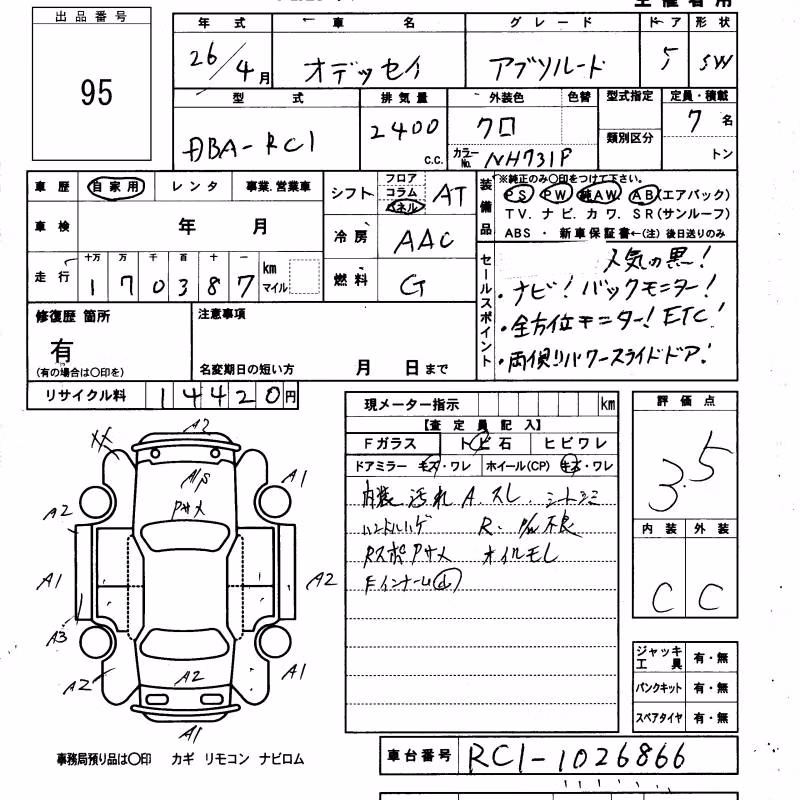 出品番号
95
年式 車名 グレード ドア 形状
26/4月 オデッセイ アブソルード 5 SW
型式 排気量 外装色 色替 型式指定 定員・積載
DBA-RC1 2400 c.c. クロ 類別区分 7名
カラーNo. NH731P トン
車歴 自家用 レンタ 事業.営業車
車検 年 月
走行 十万 万 千 百 十 一
170387 km マイル
シフト フロア コラム パネル AT
冷房 AAC
燃料 G
装備品
※純正のみ〇印をつけて下さい。
PS PW 純AW AB(エアバック)
TV. ナビ. カワ. SR(サンルーフ)
ABS ・ 新車保証書←(注) 後日送りのみ
セールスポイント
人気の黒!
・ナビ! バックモニター!
・全方位モニター! ETC!
・両側リパワースライドドア!
修復歴 箇所
有
(有の場合は〇印を)
注意事項
名変期日の短い方 月 日まで
リサイクル料 14420円
現メーター指示 km
【査定員記入】
Fガラス トビ石 ヒビワレ
ドアミラー キズ・ワレ ホイール(CP) キズ・ワレ
内装 汚れ A. スレ. シートシミ
ハンドルハゲ R.
オイルモレ
評価点
3.5
内装 外装
C C
ジャッキ工具 有・無
パンクキット 有・無
スペアタイヤ 有・無
A2
A1
A2
A1
A2
A3
A2
A2
A1
A1
事務局預り品は〇印 カギ リモコン ナビロム
車台番号 RC1-1026866